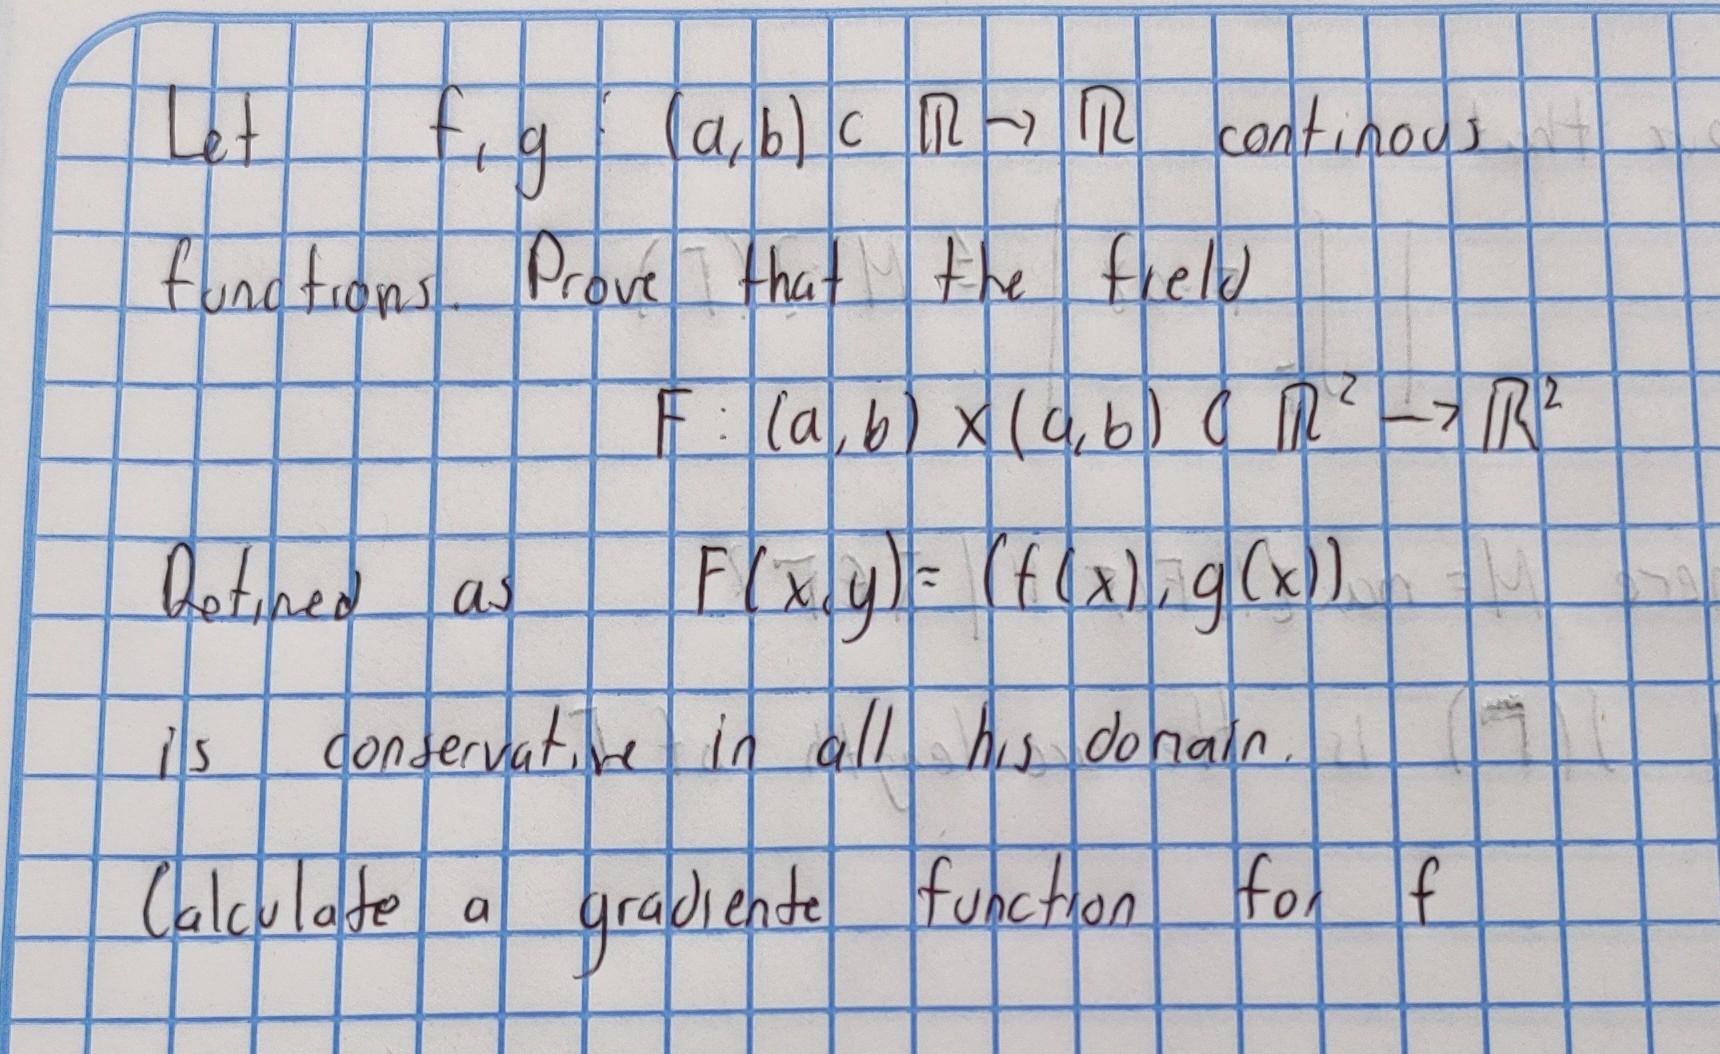 Let f, g : (a,b) ⊂ ℝ → ℝ continous
functions. Prove that the field
F : (a,b) x (a,b) ⊂ ℝ² → ℝ²
Defined as F(x,y) = (f(x), g(x))
is conservative in all his domain.
Calculate a gradiente function for f